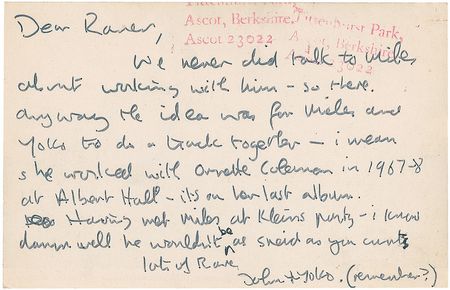 Dear Raver,
Ascot, Berkshire, Tittenhurst Park,
Ascot 23022 Ascot, Berkshire
23022
We never did talk to Miles
about working with him – so there.
anyway the idea was for Miles and
Yoko to do a track together – i mean
she worked with Ornette Coleman in 1967-8
at Albert Hall – it's on her last album.
Having met Miles at Kleins party – i know
damn well he wouldn't be as snaid as you cunts
lots of Rave
John + Yoko. (remember?)